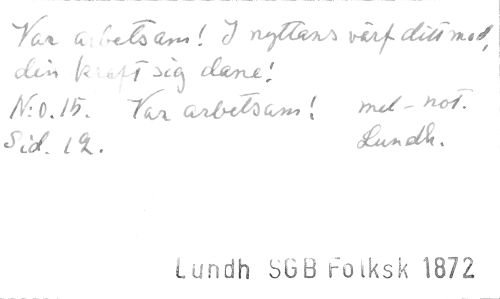 Var arbetsam! I nyttans värf ditt mod,
din kraft sig dane!
N:o. 15. Var arbetsam! mel-not.
Sid. 12. Lundh.
Lundh SGB Folksk 1872